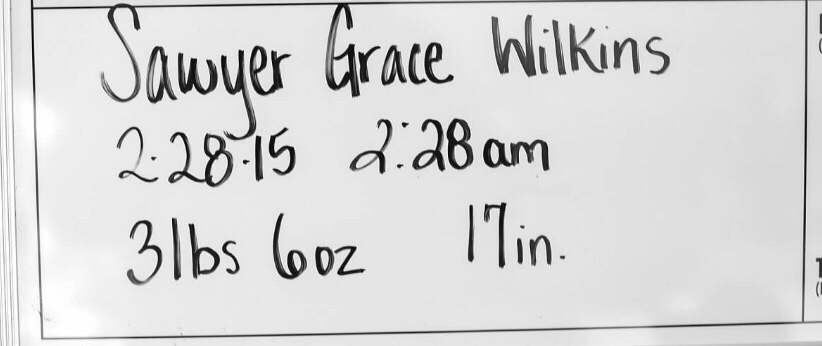 Sawyer Grace Wilkins
2.28.15 2:28am
3lbs 6oz 17in.